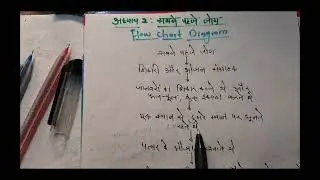 अध्याय 2 : सबसे पहले लोग
Flow Chart Diagram
सबसे पहले लोग
शिकारी और भोजन संग्राहक
जानवरों का शिकार करते थे और
फल-फूल, कंद इकट्ठा करते थे
एक स्थान से दूसरे स्थान पर घूमते
रहते थे
पत्थर के औजार बनाते थे